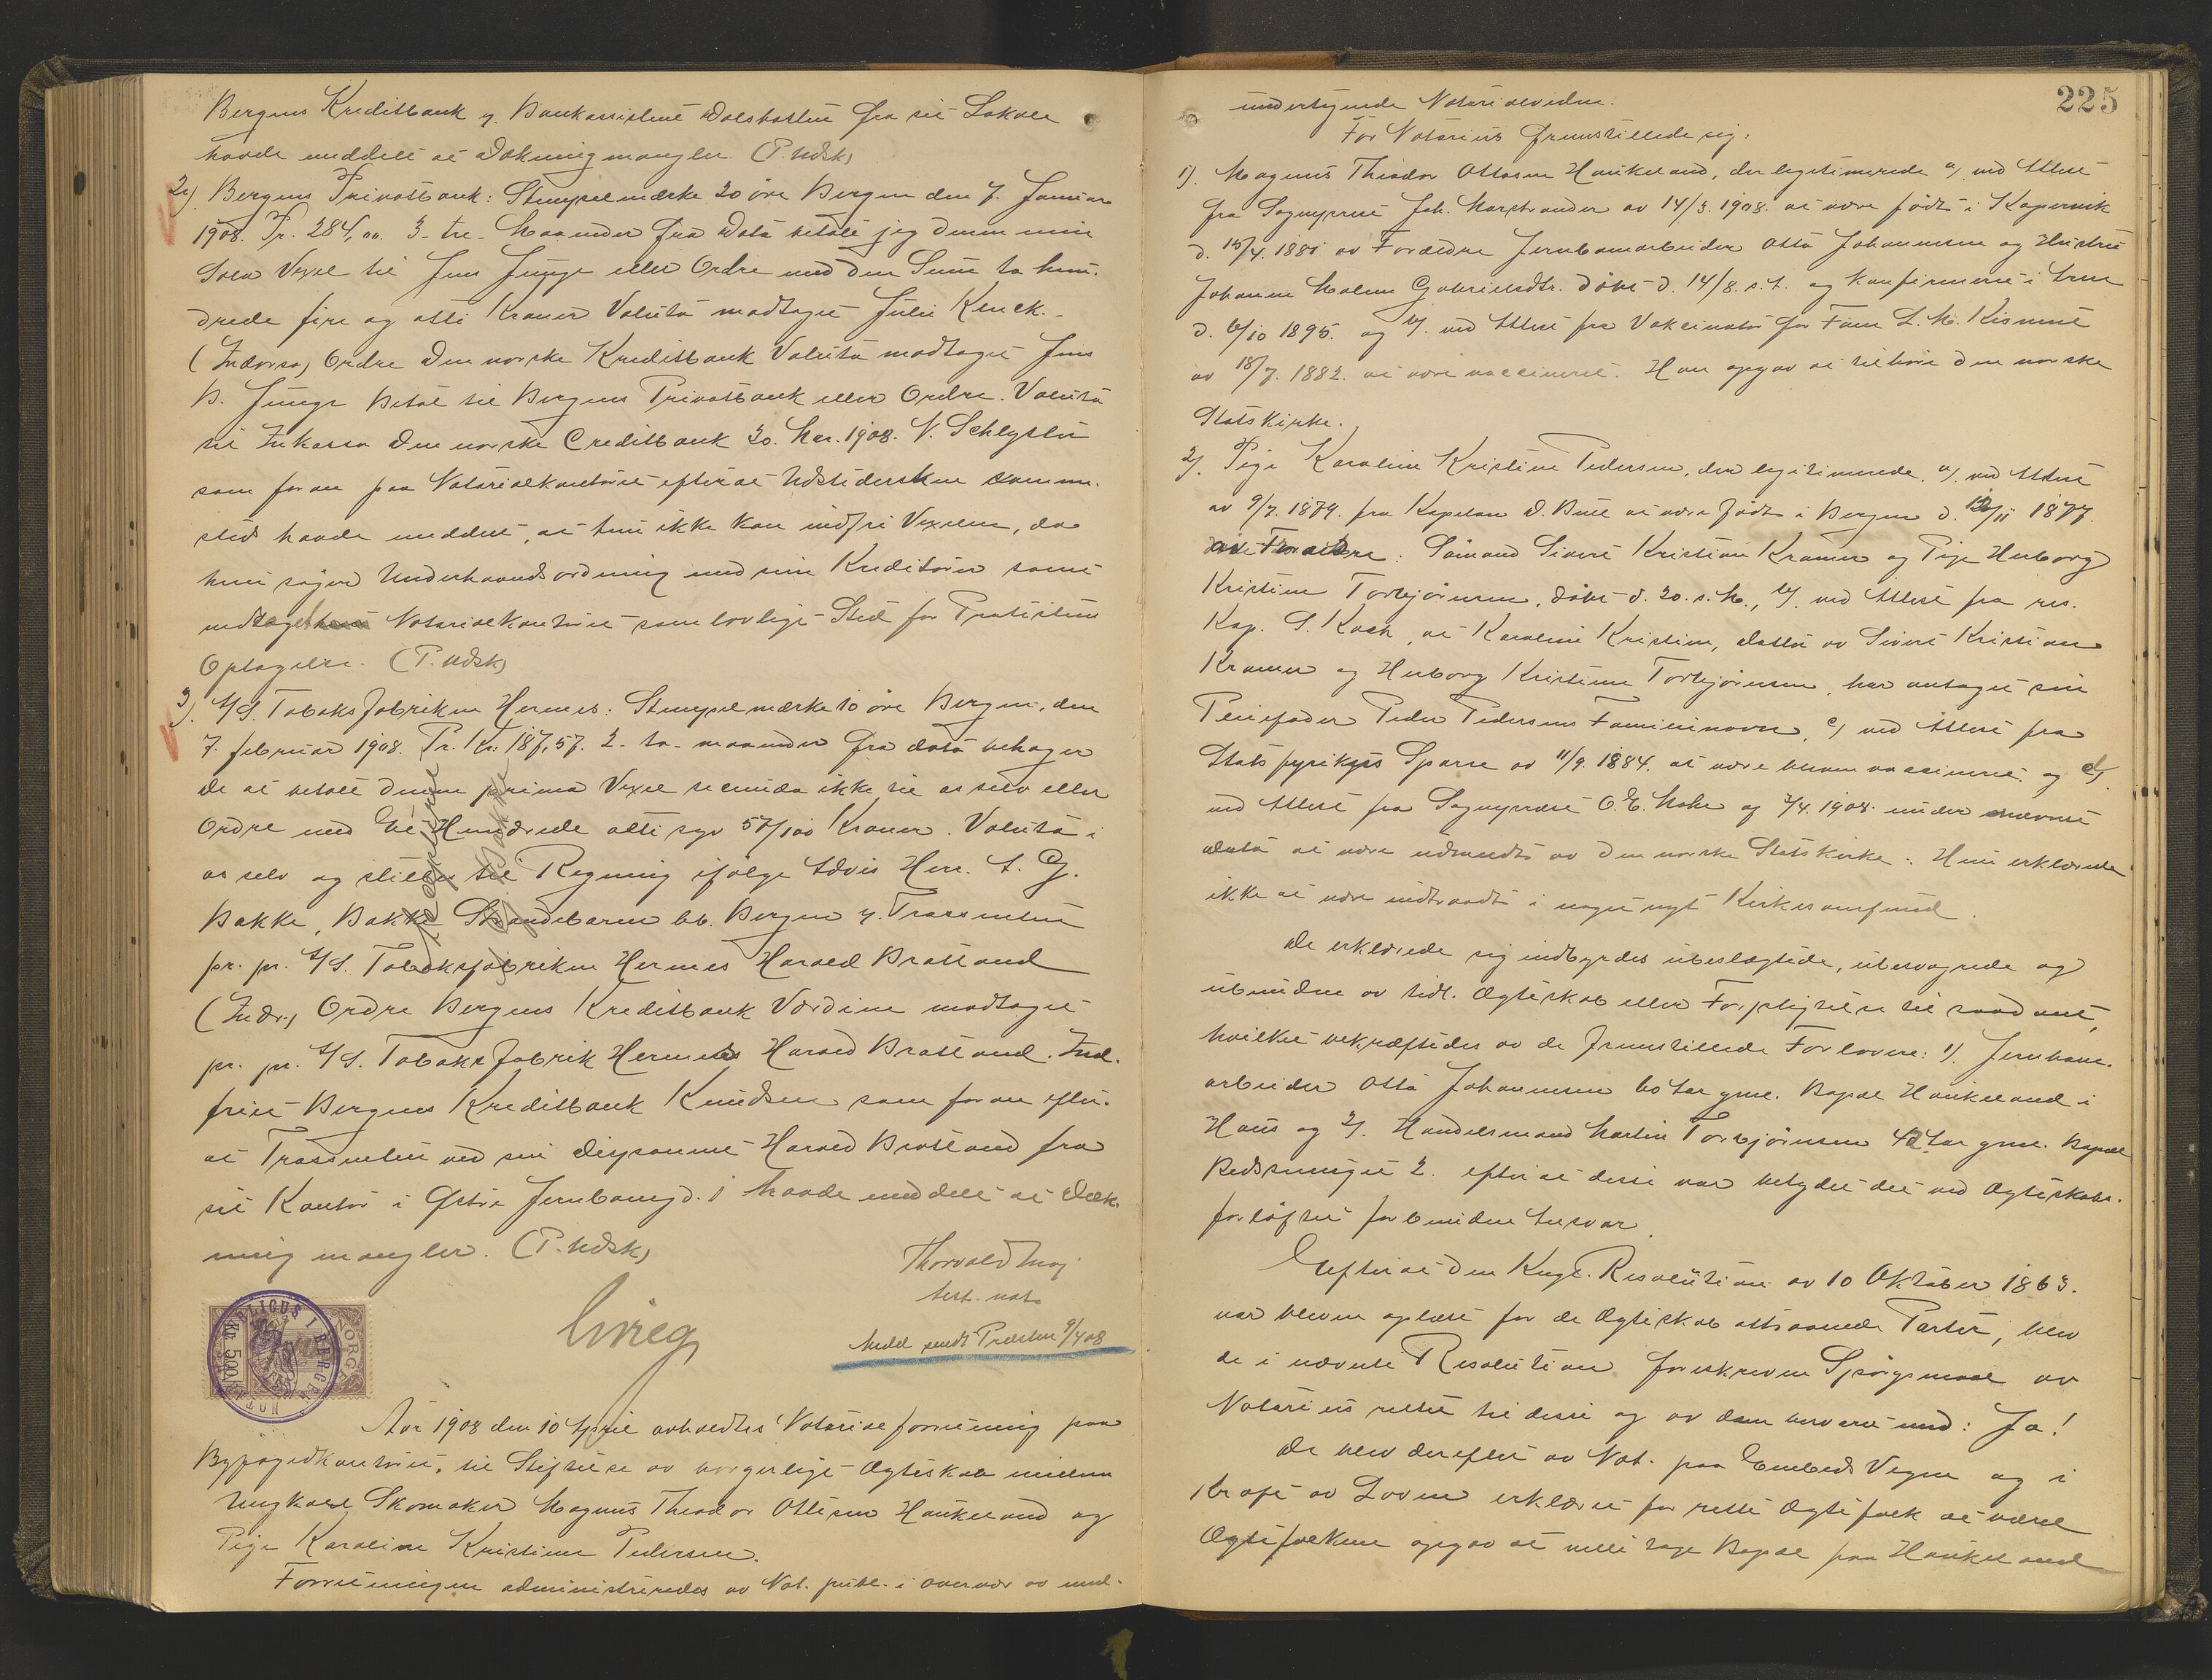 Bergens Kreditbank v. Bankassistent Dalskotten fra sit Lokale
havde meddelt at Dækning mangler. (P. Udsk)
2). Bergens Privatbank: Stempelmærke 20 öre Bergen den 7. Januar
1908. Pr. 284,00. 3 - tre - Maaneder fra Dato betale jeg denne min
Sola Vexel til Jens Junge eller Ordre med den Sum to hun-
drede fire og otti Kroner Valuta modtaget Juli Kenck. -
(Indorso) Ordre Den norske Kreditbank Valuta modtaget Jens
B. Junge Betal til Bergens Privatbank eller Ordre. Valuta
til Inkasso Den norske Creditbank 30. Mar. 1908. N. Schlytter
som foran paa Notarialkontoret efterat Udstedersken samme-
steds havde meddelt, at hun ikke kan indfri Vexelen, da
hun søger Underhaandsordning med sine Kreditorer samt
vedtaget Notarialkontoret som lovlige Sted for Protestens
Optagelse. (P. Udsk)
3). A/S. Tobaksfabriken Hermes: Stempelmærke 10 öre Bergen, den
7. februar 1908. Pr. Kr. 187,57. 2 - to - maaneder fra dato behager
De at betale denne prima Vexel secunda ikke til os selv eller
Ordre med Et Hundrede otti syv 57/100 Kroner. Valuta i
os selv og stilles til Regning ifølge Advis Herr. A. G.
Bakke, Bakke Strandebarm bb. Bergen v. Trassenten
pr. pr. A/S. Tobaksfabriken Hermes Harald Bratland
Accepteret
A G Bakke
(Indr.) Ordre Bergens Kreditbank Værdien modtaget
pr. pr. A/S. Tobaksfabrik Hermes Harald Bratland. Ind-
friet Bergens Kreditbank Knudsen som foran efter-
at Trassenten ved sin disponent Harald Bratland fra
sit Kontor i Østre Jernbanegd. 1 havde meddelt at Dæk-
ning mangler. (P. Udsk)
Thorvald Moj
test. not.
Medd. sendt Præsten 9/4 08
NOTARIUS PUBLICUS I BERGEN
NORGE
Kr. 50
Aar 1908 den 10 April avholdtes Notarialforretning paa
Byfogedkontoret, til Stiftelse av borgerlige Ægteskab mellem
Ungkarl Skomaker Magnus Theodor Ottesen Haukeland og
Pige Karoline Kristine Pedersen.
Forretningen administreredes av Not. publ. i Overvær av med-
225
undertegnede Notarialvidne.
For Notarius fremstillede sig:
1). Magnus Theodor Ottosen Haukeland, der legitimerede a) ved Attest
fra Sogneprest Joh. Marstrander av 14/3. 1908. at være født i Kopervik
d. 15/4. 1881 av Forældre Jernbanearbeider Otto Johannesen og Hustru
Johanne Malene Gabrielsdtr. døbt d. 14/8. s. A. og konfirmeret i
d. 6/10 1895. og b). ved Attest fra Vakcinator for L. M. Kismul
av 18/7. 1882. at være vaccineret. Han opgav at tilhøre den norske
Statskirke.
2). Pige Karoline Kristine Pedersen, der legitimerede, a) ved Attest
av 9/7. 1879. fra Kapellan D. Bull at være født i Bergen d. /11 1877.
av Forældre: Sømand Sivert Kristian Kramer og Pige Herborg
Kristine Torbjørnsen, døbt d. 30. s. M., b). ved Attest fra res.
Kap. S. Koch, at Karoline Kristine, datter av Sivert Kristian
Kramer og Herborg Kristine Torbjørnsen, har antaget sin
Pleiefader Peder Pedersens Familienavn, c) ved Attest fra
Stadsfysikus Sparre av 11/9. 1884. at være bleven vaccineret og d).
ved Attest fra Sogneprest O. E. Mohn av 2/4. 1908. under nævnte
dato at være udmeldt av Den norske Statskirke. Hun erklærede
ikke at være indtraadt i noget nyt Kirkesamfund.
De erklærede sig indbyrdes ubeslægtede, ubesvogrede og
ubundne av tidl. Ægteskab eller Forpligtelse til saadant,
hvilket bekræftedes av de fremstillede Forlovere: 1). Jernbane-
arbeider Otto Johannesen 60 Aar gml. Bopæl Haukeland i
Haus og 2). Handelsmand Martin Torbjørnsen 42 Aar gml. Bopæl
Rødsmuget 2. efterat disse var betydet det ved Ægteskabs-
forløftet forbundne Ansvar.
Efterat den Kngl. Resolution av 10 Oktober 1863.
var bleven oplæst for de Ægteskab attraaende Parter, blev
de i nævnte Resolution foreskrevne Spørgsmaal av
Notarius rettet til disse og av dem besvaret med: Ja!
De blev derefter av Not. paa Embeds Vegne og i
Kraft av Loven erklæret for rette Ægtefolk at være.
Ægtefolkene opgav at ville tage Bopæl paa Haukeland